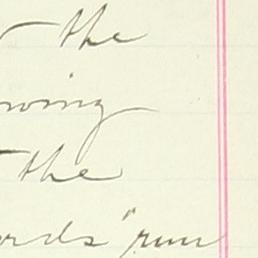 the
wing
the
ords "run